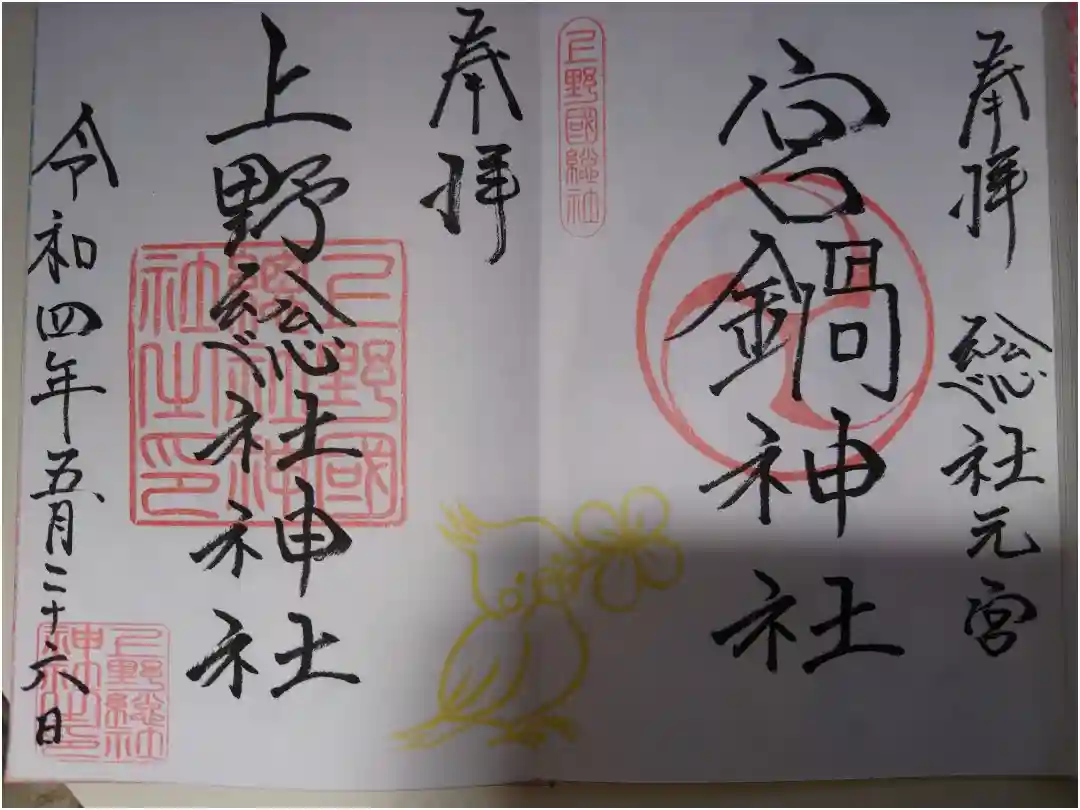 奉拝 総社元宮
宮鍋神社
上野國総社
奉拝
上野総社神社
上野國総社神社之印
令和四年五月二十六日
上野総社神社之印